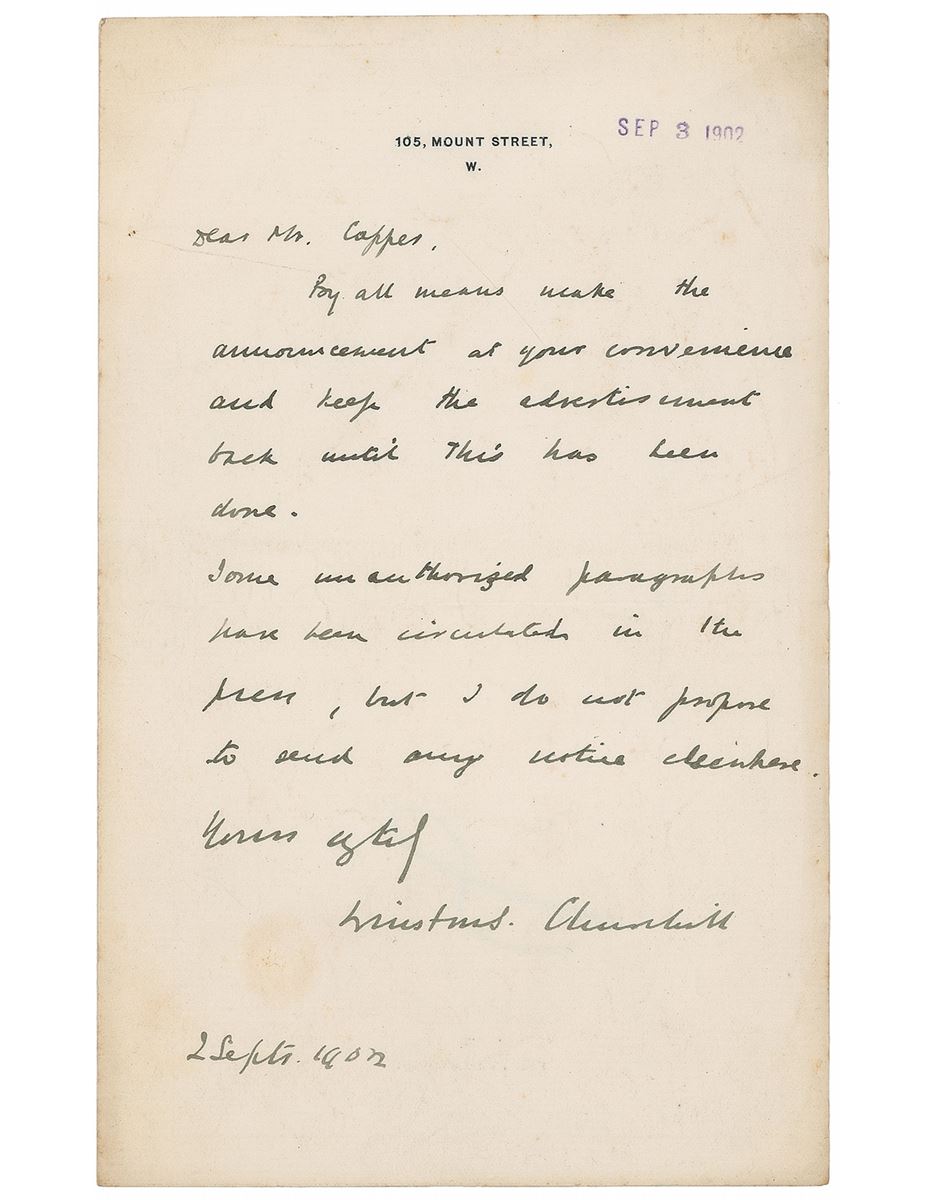 105, MOUNT STREET,
W.
SEP 3 1902
Dear Mr. Capper,
By all means make the
announcement at your convenience
and keep the advertisement
back until this has been
done.
Some unauthorized paragraphs
have been circulated in the
press, but I do not propose
to send any notice elsewhere.
Yours
Winston S. Churchill
2 Septr. 1902